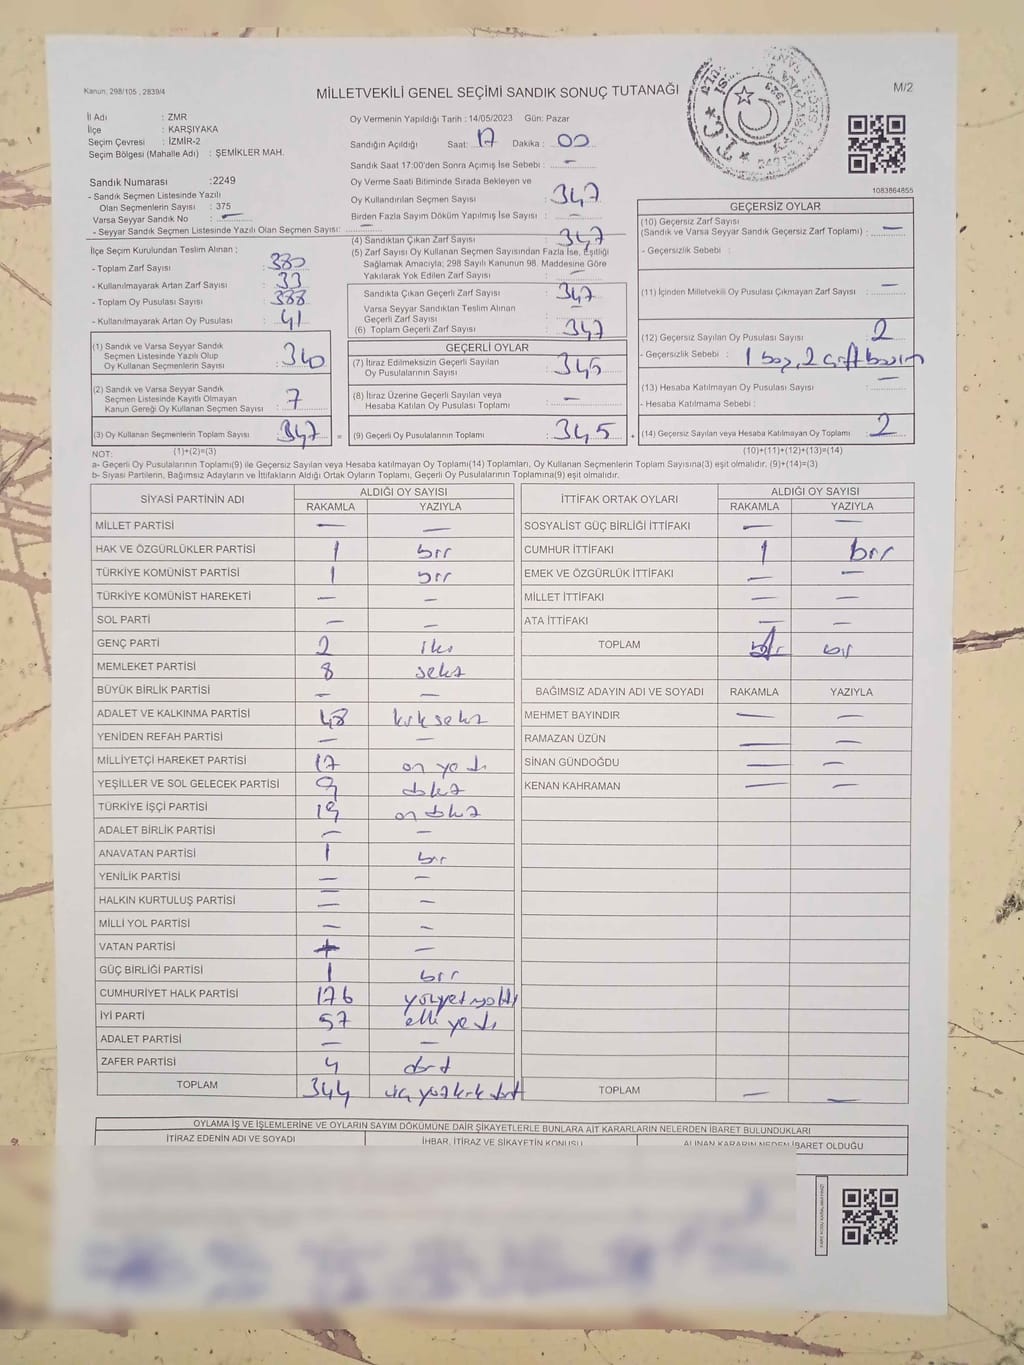 Kanun, 298/105 , 2839/4
MİLLETVEKİLİ GENEL SEÇİMİ SANDIK SONUÇ TUTANAĞI
M/2
İl Adı : ZMR
İlçe : KARŞIYAKA
Seçim Çevresi : İZMİR-2
Seçim Bölgesi (Mahalle Adı) : ŞEMİKLER MAH.
Sandık Numarası :2249
- Sandık Seçmen Listesinde Yazılı
Olan Seçmenlerin Sayısı : 375
Varsa Seyyar Sandık No : —
- Seyyar Sandık Seçmen Listesinde Yazılı Olan Seçmen Sayısı: —
Oy Vermenin Yapıldığı Tarih : 14/05/2023 Gün: Pazar
Sandığın Açıldığı Saat: 17 Dakika : 00
Sandık Saat 17:00'den Sonra Açımış İse Sebebi : —
Oy Verme Saati Bitiminde Sırada Bekleyen ve
Oy Kullandırılan Seçmen Sayısı : 347
Birden Fazla Sayım Döküm Yapılmış İse Sayısı : —
1083864855
İlçe Seçim Kurulundan Teslim Alınan :
- Toplam Zarf Sayısı : 380
- Kullanılmayarak Artan Zarf Sayısı : 33
- Toplam Oy Pusulası Sayısı : 388
- Kullanılmayarak Artan Oy Pusulası : 41
(1) Sandık ve Varsa Seyyar Sandık
Seçmen Listesinde Yazılı Olup
Oy Kullanan Seçmenlerin Sayısı : 340
(2) Sandık ve Varsa Seyyar Sandık
Seçmen Listesinde Kayıtlı Olmayan
Kanun Gereği Oy Kullanan Seçmen Sayısı : 7
(3) Oy Kullanan Seçmenlerin Toplam Sayısı : 347
(1)+(2)=(3)
(4) Sandıktan Çıkan Zarf Sayısı : 347
(5) Zarf Sayısı Oy Kullanan Seçmen Sayısından Fazla İse, Eşitliği
Sağlamak Amacıyla; 298 Sayılı Kanunun 98. Maddesine Göre
Yakılarak Yok Edilen Zarf Sayısı : —
Sandıkta Çıkan Geçerli Zarf Sayısı : 347
Varsa Seyyar Sandıktan Teslim Alınan
Geçerli Zarf Sayısı : —
(6) Toplam Geçerli Zarf Sayısı : 347
GEÇERLİ OYLAR
(7) İtiraz Edilmeksizin Geçerli Sayılan
Oy Pusulalarının Sayısı : 345
(8) İtiraz Üzerine Geçerli Sayılan veya
Hesaba Katılan Oy Pusulası Toplamı : —
= (9) Geçerli Oy Pusulalarının Toplamı : 345
GEÇERSİZ OYLAR
(10) Geçersiz Zarf Sayısı
(Sandık ve Varsa Seyyar Sandık Geçersiz Zarf Toplamı) : —
- Geçersizlik Sebebi :
(11) İçinden Milletvekili Oy Pusulası Çıkmayan Zarf Sayısı : —
(12) Geçersiz Sayılan Oy Pusulası Sayısı : 2
- Geçersizlik Sebebi : 1 boş, 2 çift basım
(13) Hesaba Katılmayan Oy Pusulası Sayısı : —
- Hesaba Katılmama Sebebi :
+ (14) Geçersiz Sayılan veya Hesaba Katılmayan Oy Toplamı : 2
(10)+(11)+(12)+(13)=(14)
NOT:
a- Geçerli Oy Pusulalarının Toplamı(9) ile Geçersiz Sayılan veya Hesaba katılmayan Oy Toplamı(14) Toplamları, Oy Kullanan Seçmenlerin Toplam Sayısına(3) eşit olmalıdır. (9)+(14)=(3)
b- Siyasi Partilerin, Bağımsız Adayların ve İttifakların Aldığı Ortak Oyların Toplamı, Geçerli Oy Pusulalarının Toplamına(9) eşit olmalıdır.
SİYASİ PARTİNİN ADI ALDIĞI OY SAYISI
RAKAMLA YAZIYLA
MİLLET PARTİSİ — —
HAK VE ÖZGÜRLÜKLER PARTİSİ 1 bir
TÜRKİYE KOMÜNİST PARTİSİ 1 bir
TÜRKİYE KOMÜNİST HAREKETİ — —
SOL PARTİ — —
GENÇ PARTİ 2 iki
MEMLEKET PARTİSİ 8 sekiz
BÜYÜK BİRLİK PARTİSİ — —
ADALET VE KALKINMA PARTİSİ 48 kırk sekiz
YENİDEN REFAH PARTİSİ — —
MİLLİYETÇİ HAREKET PARTİSİ 17 on yedi
YEŞİLLER VE SOL GELECEK PARTİSİ 9 dokuz
TÜRKİYE İŞÇİ PARTİSİ 19 on dokuz
ADALET BİRLİK PARTİSİ — —
ANAVATAN PARTİSİ 1 bir
YENİLİK PARTİSİ — —
HALKIN KURTULUŞ PARTİSİ — —
MİLLİ YOL PARTİSİ — —
VATAN PARTİSİ — —
GÜÇ BİRLİĞİ PARTİSİ 1 bir
CUMHURİYET HALK PARTİSİ 176 yüzyetmişaltı
İYİ PARTİ 57 elli yedi
ADALET PARTİSİ — —
ZAFER PARTİSİ 4 dört
TOPLAM 344 üç yüz kırk dört
İTTİFAK ORTAK OYLARI ALDIĞI OY SAYISI
RAKAMLA YAZIYLA
SOSYALİST GÜÇ BİRLİĞİ İTTİFAKI — —
CUMHUR İTTİFAKI 1 bir
EMEK VE ÖZGÜRLÜK İTTİFAKI — —
MİLLET İTTİFAKI — —
ATA İTTİFAKI — —
TOPLAM 1 bir
BAĞIMSIZ ADAYIN ADI VE SOYADI RAKAMLA YAZIYLA
MEHMET BAYINDIR — —
RAMAZAN ÜZÜN — —
SİNAN GÜNDOĞDU — —
KENAN KAHRAMAN — —
TOPLAM — —
OYLAMA İŞ VE İŞLEMLERİNE VE OYLARIN SAYIM DÖKÜMÜNE DAİR ŞİKAYETLERLE BUNLARA AİT KARARLARIN NELERDEN İBARET BULUNDUKLARI
İTİRAZ EDENİN ADI VE SOYADI İHBAR, İTİRAZ VE ŞİKAYETİN KONUSU ALINAN KARARIN NEDEN İBARET OLDUĞU